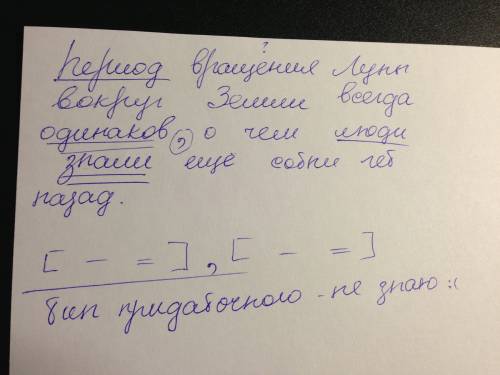 период вращения Луны
вокруг Земли всегда
одинаков, о чем люди
знали ещё сотни лет
назад.
[ — = ], [ — = ]
тип придаточного - не знаю :(